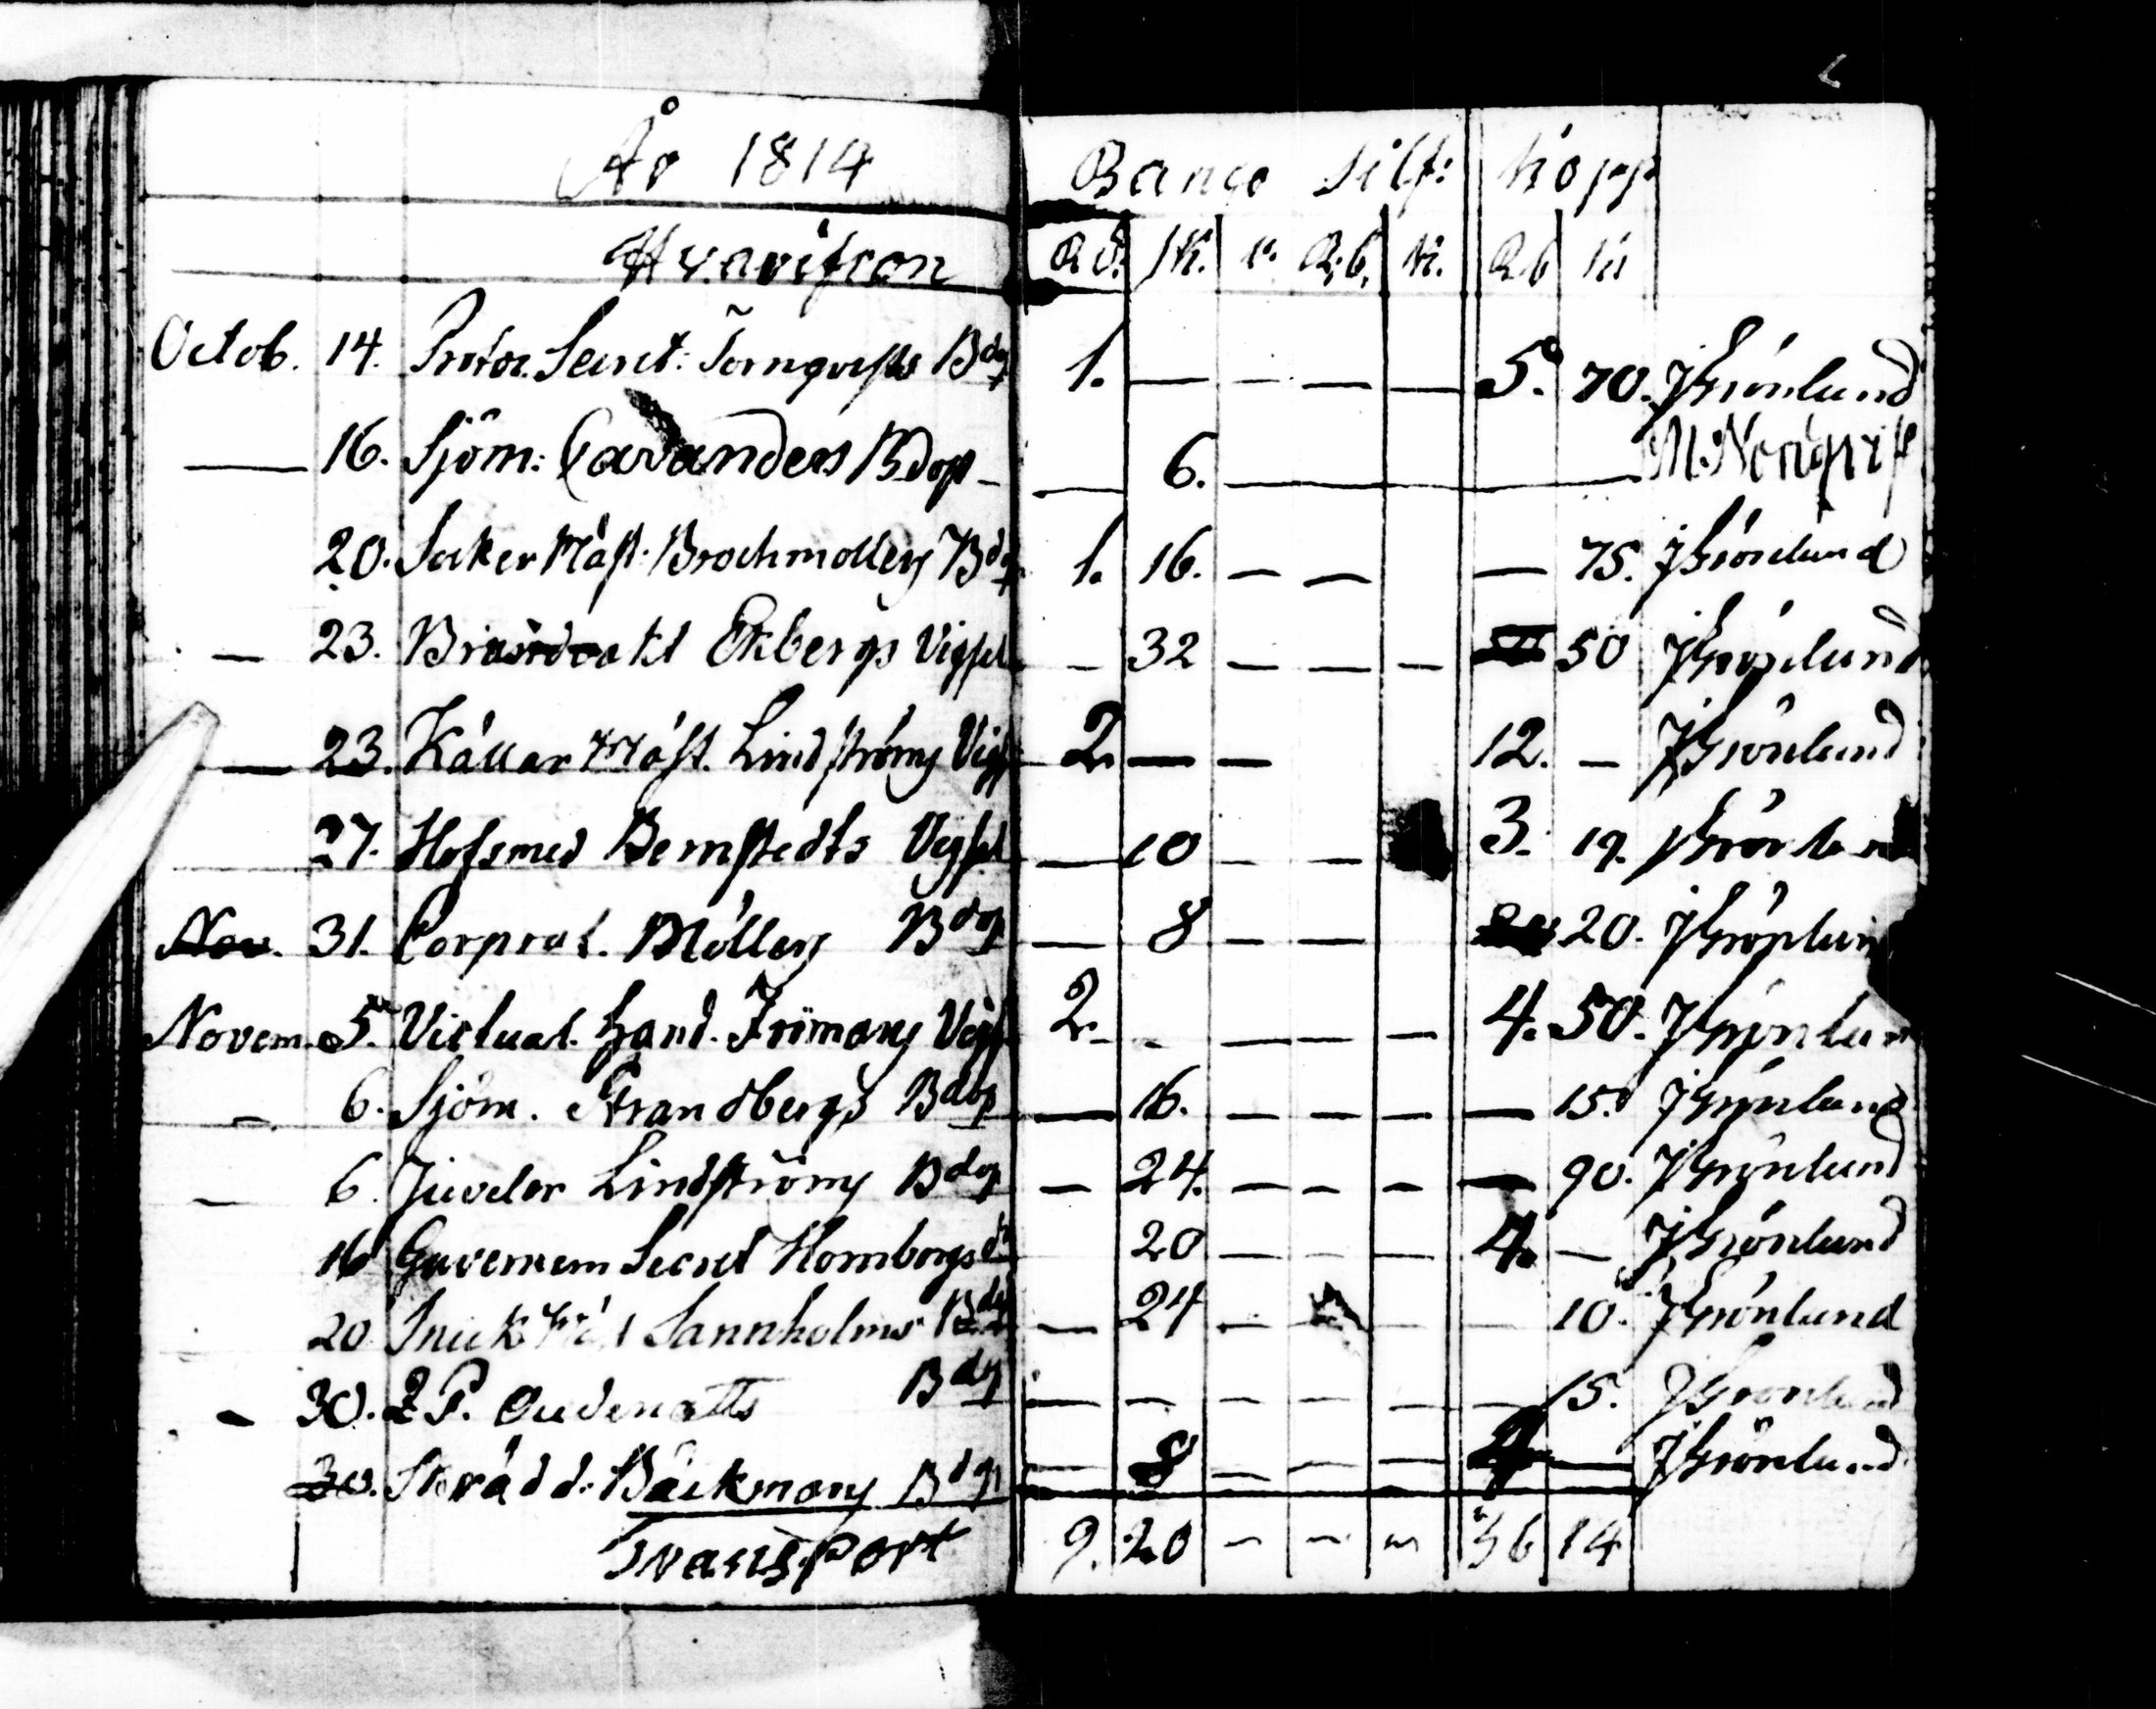 År 1814 Banco Silf: Kopp
Hvarifron Rd. sk. r. R:b. K. Rb K
Octob. 14. Protoc. Secret: Törnqvists Bdop 1. — — — — 5. 70. J Grönlund
— 16. Sjöm: Cavanders Bdop — 6. — M: Nordqvist
20. Socker Mäst. Brochmollers Bdop 1. 16. — — — 75. J Grönlund
— 23. Brandvakt Ekbergs Vigsel — 32 — — — 50 J Grönlund
— 23. Källar Mäst. Lindströms Vigs 2. — — 12. — J Grönlund
27. Hofsmed Bernstedts Vigsel — 10 — — 3. 19. J Grönlund
Nov. 31. Corpral. Möllers Bdop — 8 — — 20. J Grönlun
Novem. 5. Victual. Hand. Frimans Vigs 2. - — — — 4. 50. J Grönlun
— 6. Sjöm. Strandbergs Bdop — 16. — — — — 15. J Grönlund
— 6. Juveler Lindströms Bdop — 24. — — — — 90. J Grönlund
16 Guvernem Secret Hornborgs d 20 — — — 4. — J Grönlund
20 Snick Mäst Sannholms Bdop — 24 — — — 10. J Grönlund
- 30. Bdop — — — — — — 15. J Grönlund
30. Skrädd: Bäckmans Bdop — 8 — — — 4 — J Grönlund
Transport 9. 20 — — — 36 14